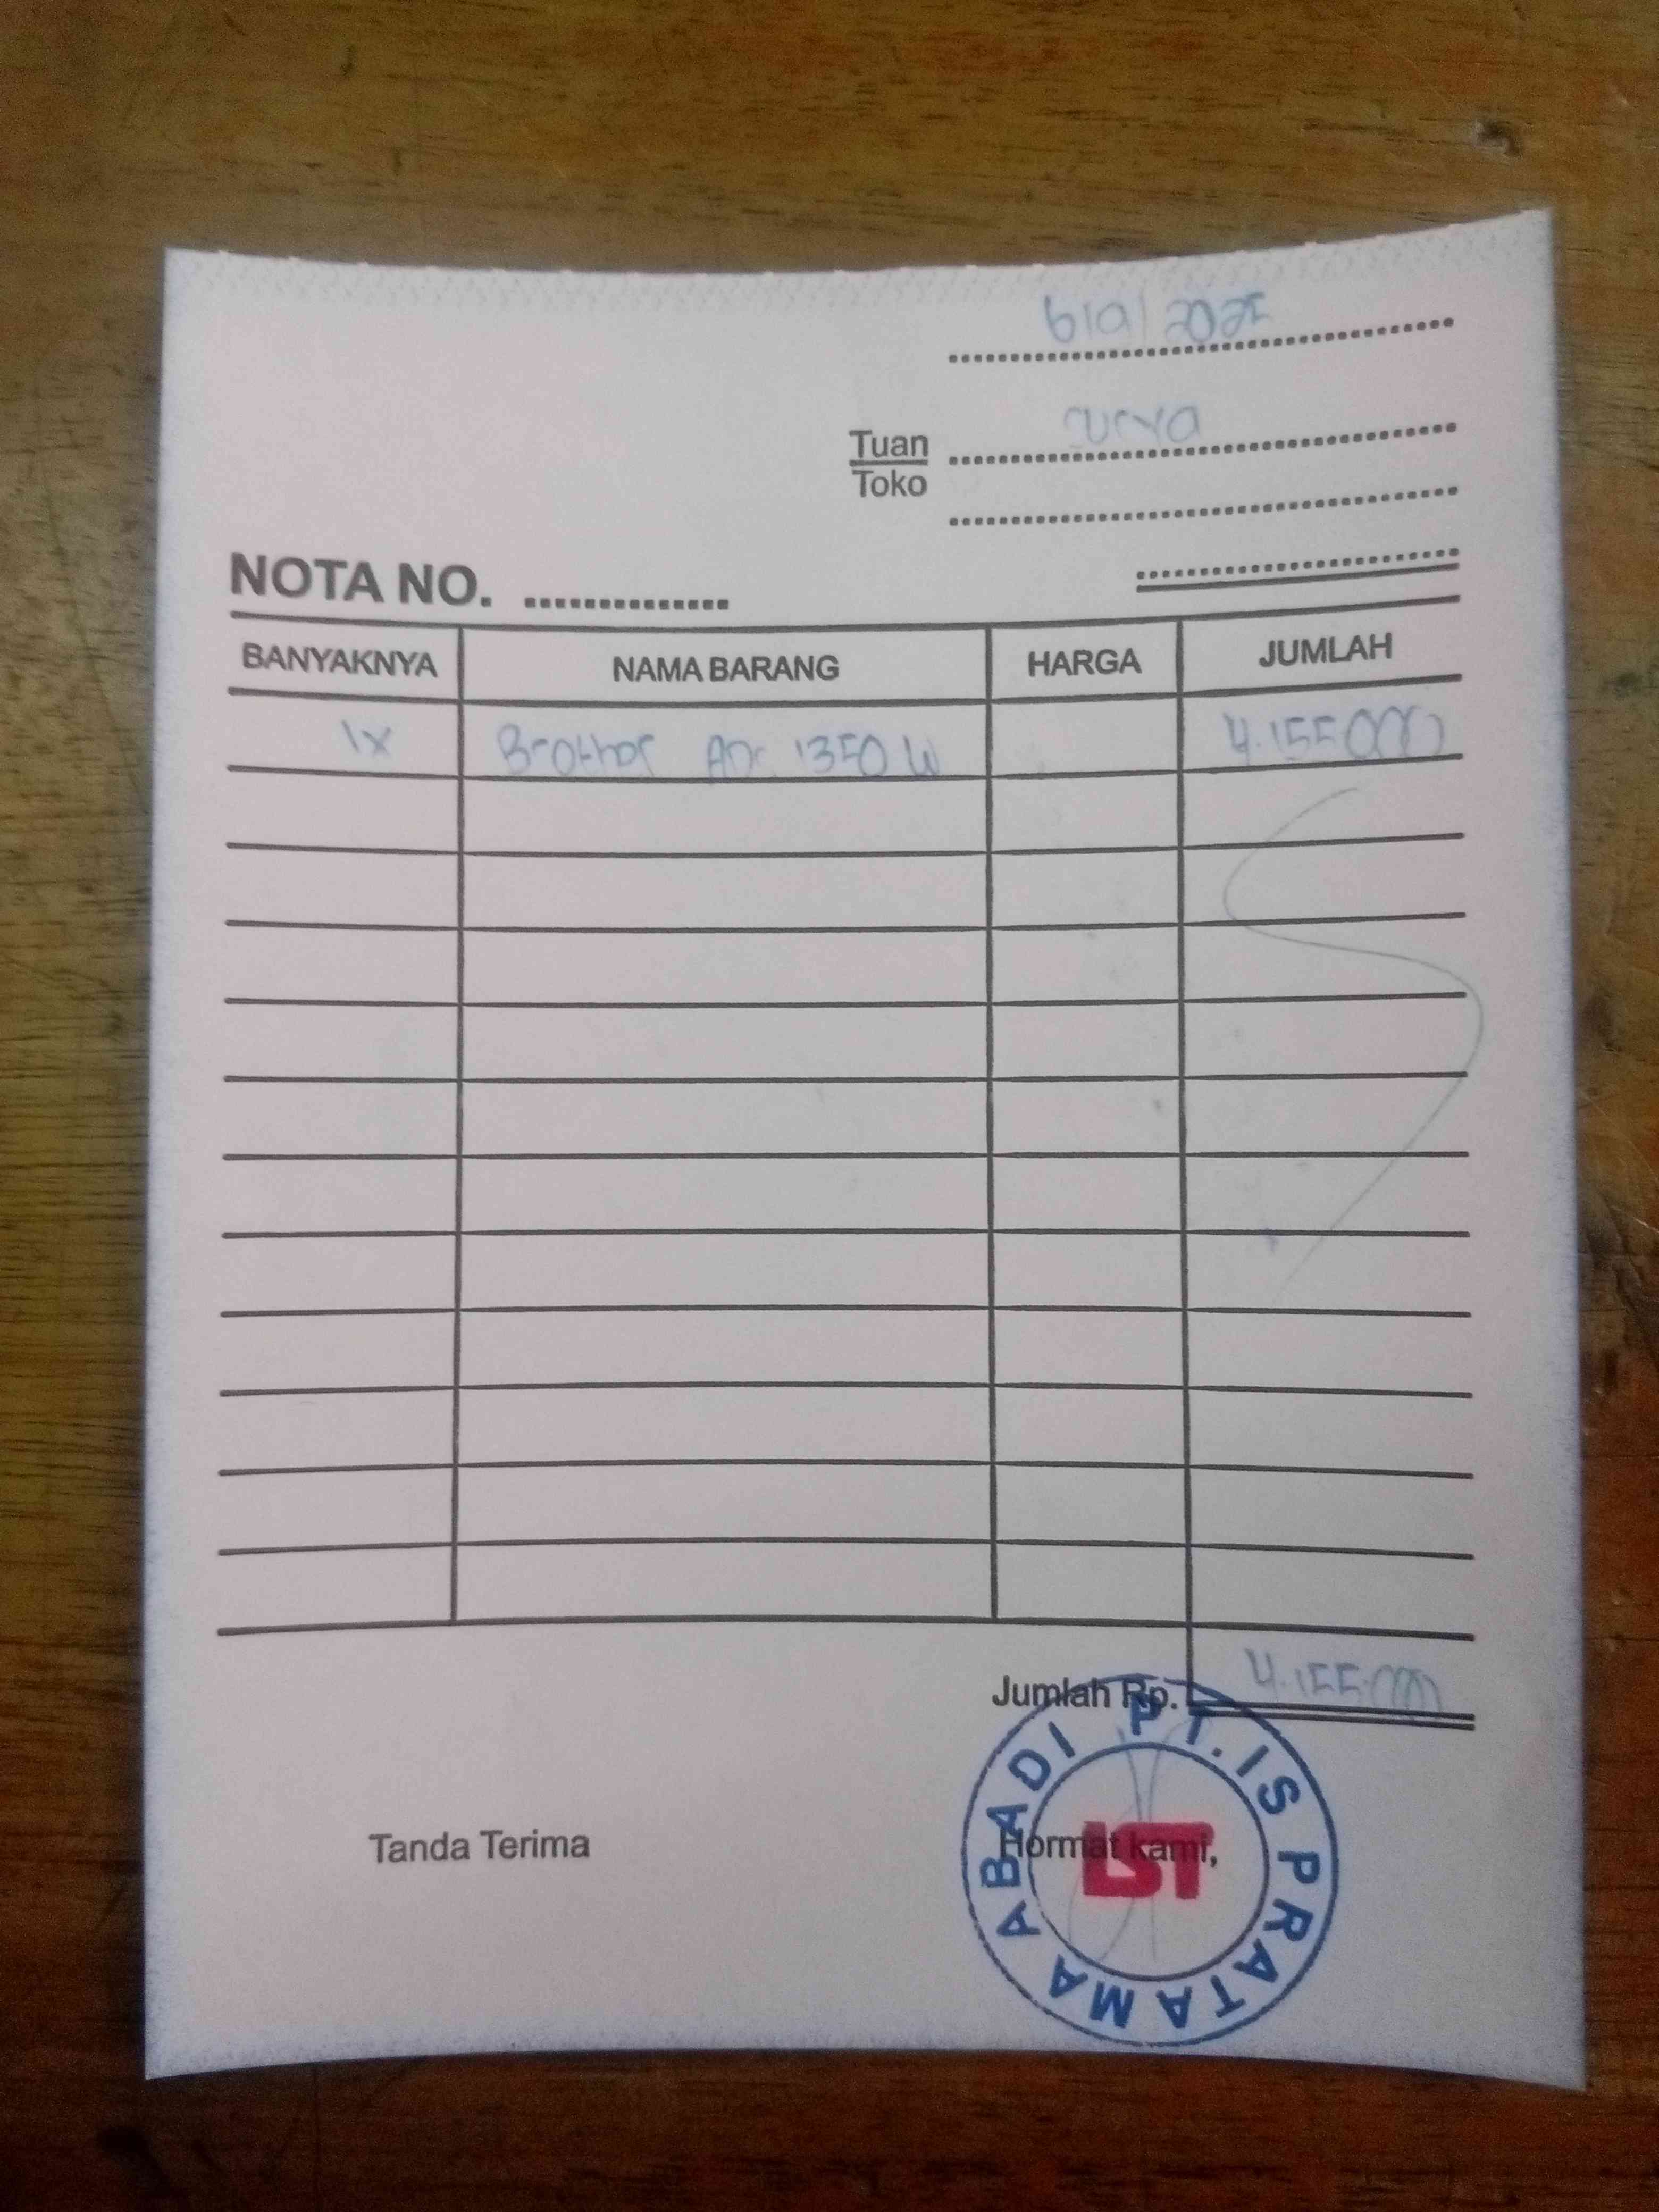 6/9/2025
Tuan surya
Toko
NOTA NO.
BANYAKNYA NAMA BARANG HARGA JUMLAH
1x Brother ADS 1350 W 4.155.000
Jumlah Rp. 4.155.000
Tanda Terima Hormat kami,
PT. IS PRATAMA ABADI
IST